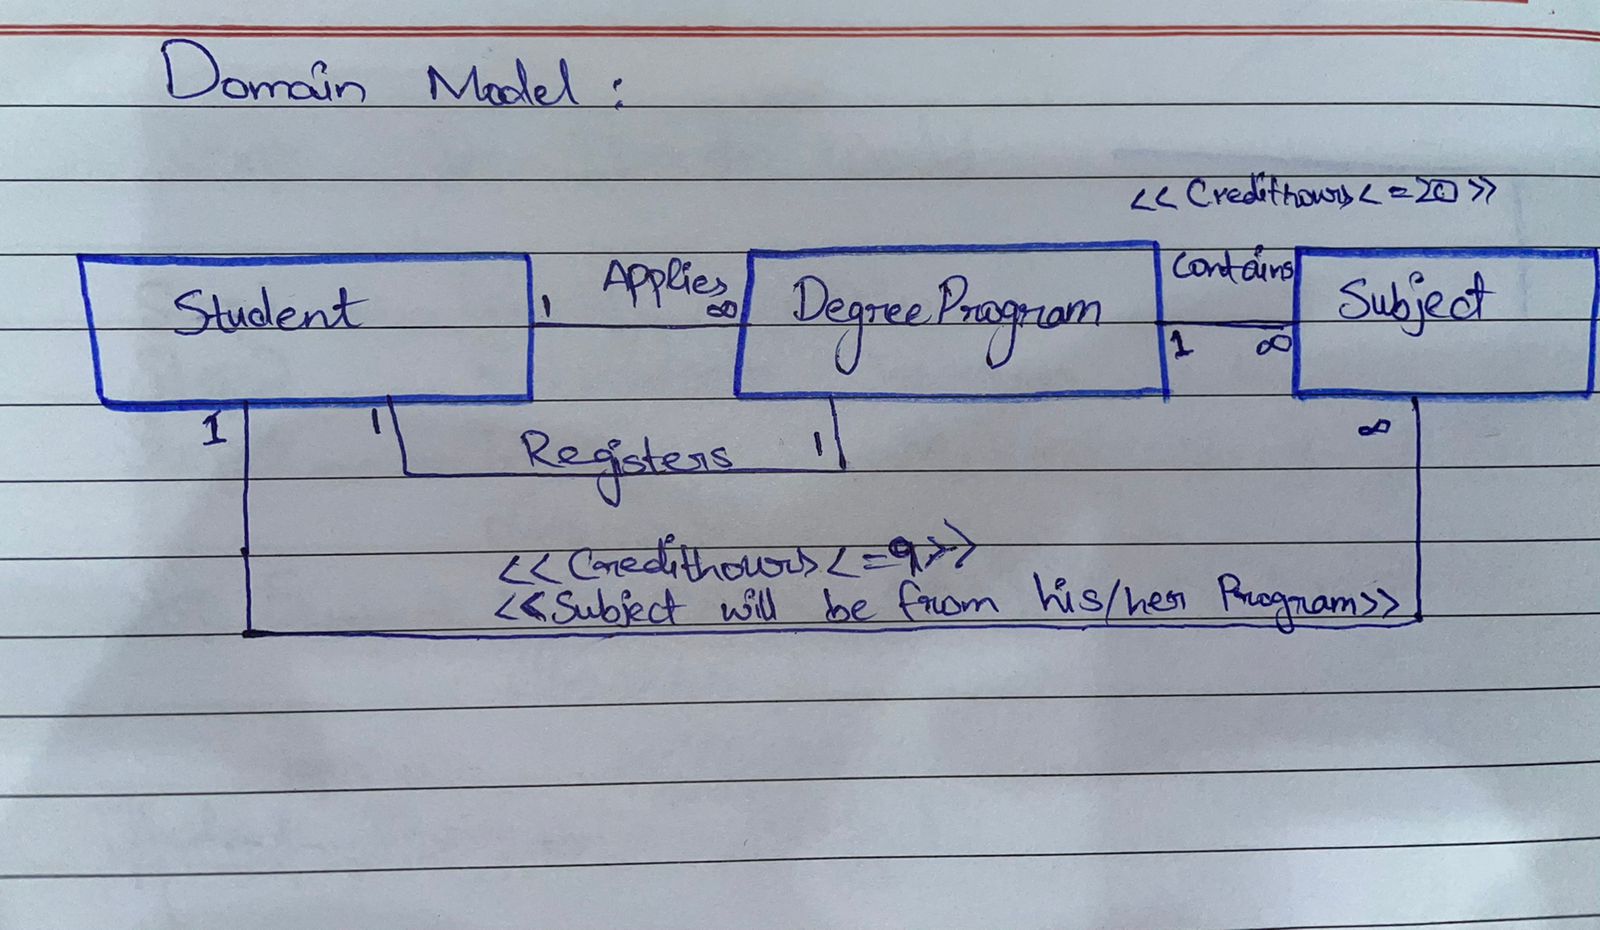 Domain Model :
<<Credithours<=20>>
Student
1
Applies
∞
DegreeProgram
Contains
1
∞
Subject
1
1
Registers
1
∞
<<Credithours<=9>>
<<Subject will be from his/her Program>>